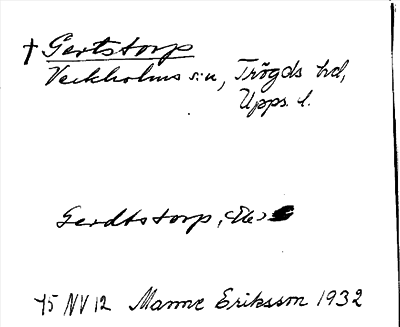 † Gertstorp
Veckholms s:n, Trögds hd,
Upps. l.
Gerdtstorp,
45 NV 12 Manne Eriksson 1932